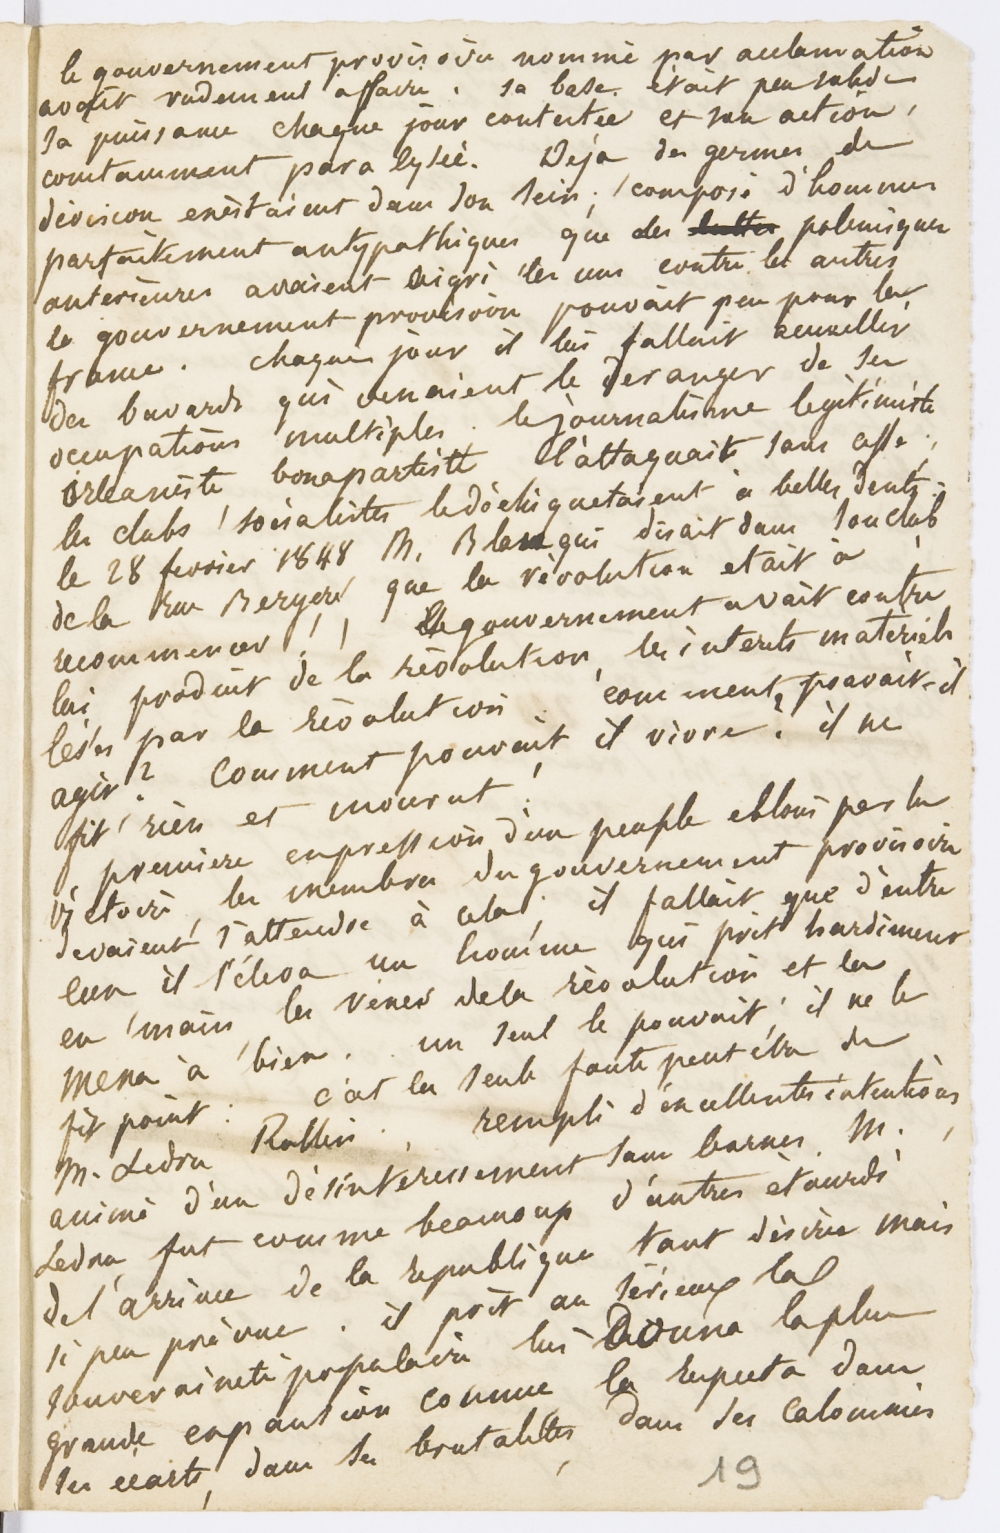 le gouvernement provisoire nommé par acclamation
avait rudement affaire. sa base était peu solide
sa puissance chaque jour contestée et son action,
constamment paralysée. Déja des germes de
division existaient dans son sein; composé d'hommes
parfaitement antypathiques que des luttes polemiques
anterieures avaient aigri les uns contre les autres
le gouvernement provisoire pouvait peu pour la
france. chaque jour il lui fallait accueillir
des bavards qui venaient le deranger de ses
occupations multiples. le journalisme legitimiste
orleaniste bonapartiste l'attaquait sans cesse,
les clubs socialistes le déchiquetaient à belles dents:
le 28 fevrier 1848 M. Blanqui disait dans son club
de la rue Bergere que la révolution etait à
recommencer!! Le gouvernement avait contre
lui produit de la révolution, les interets materiels
lésés par la révolution. comment pouvait-il
agir? Comment pouvait il vivre? il ne
fit rien et mourut!
premiere expression d'un peuple ebloui par la
victoire, les membres du gouvernement provisoire
devaient s'attendre à cela; il fallait que d'entre
eux il s'éleva un homme qui prit hardiment
en main les rènes de la révolution et la
mena à bien. un seul le pouvait, il ne le
fit point. c'est la seule faute peut être de
M. Ledru Rollin. rempli d'excellentes intentions,
animé d'un désintéressement sans bornes, M.
Ledru fut comme beaucoup d'autres étourdi
de l'arrivée de la republique tant désirée mais
si peu prévue. il prit au sérieux la
souveraineté populaire lui donna la plus
grande expansion comme la respecta dans
ses écarts, dans ses brutalités, dans ses calomnies
19